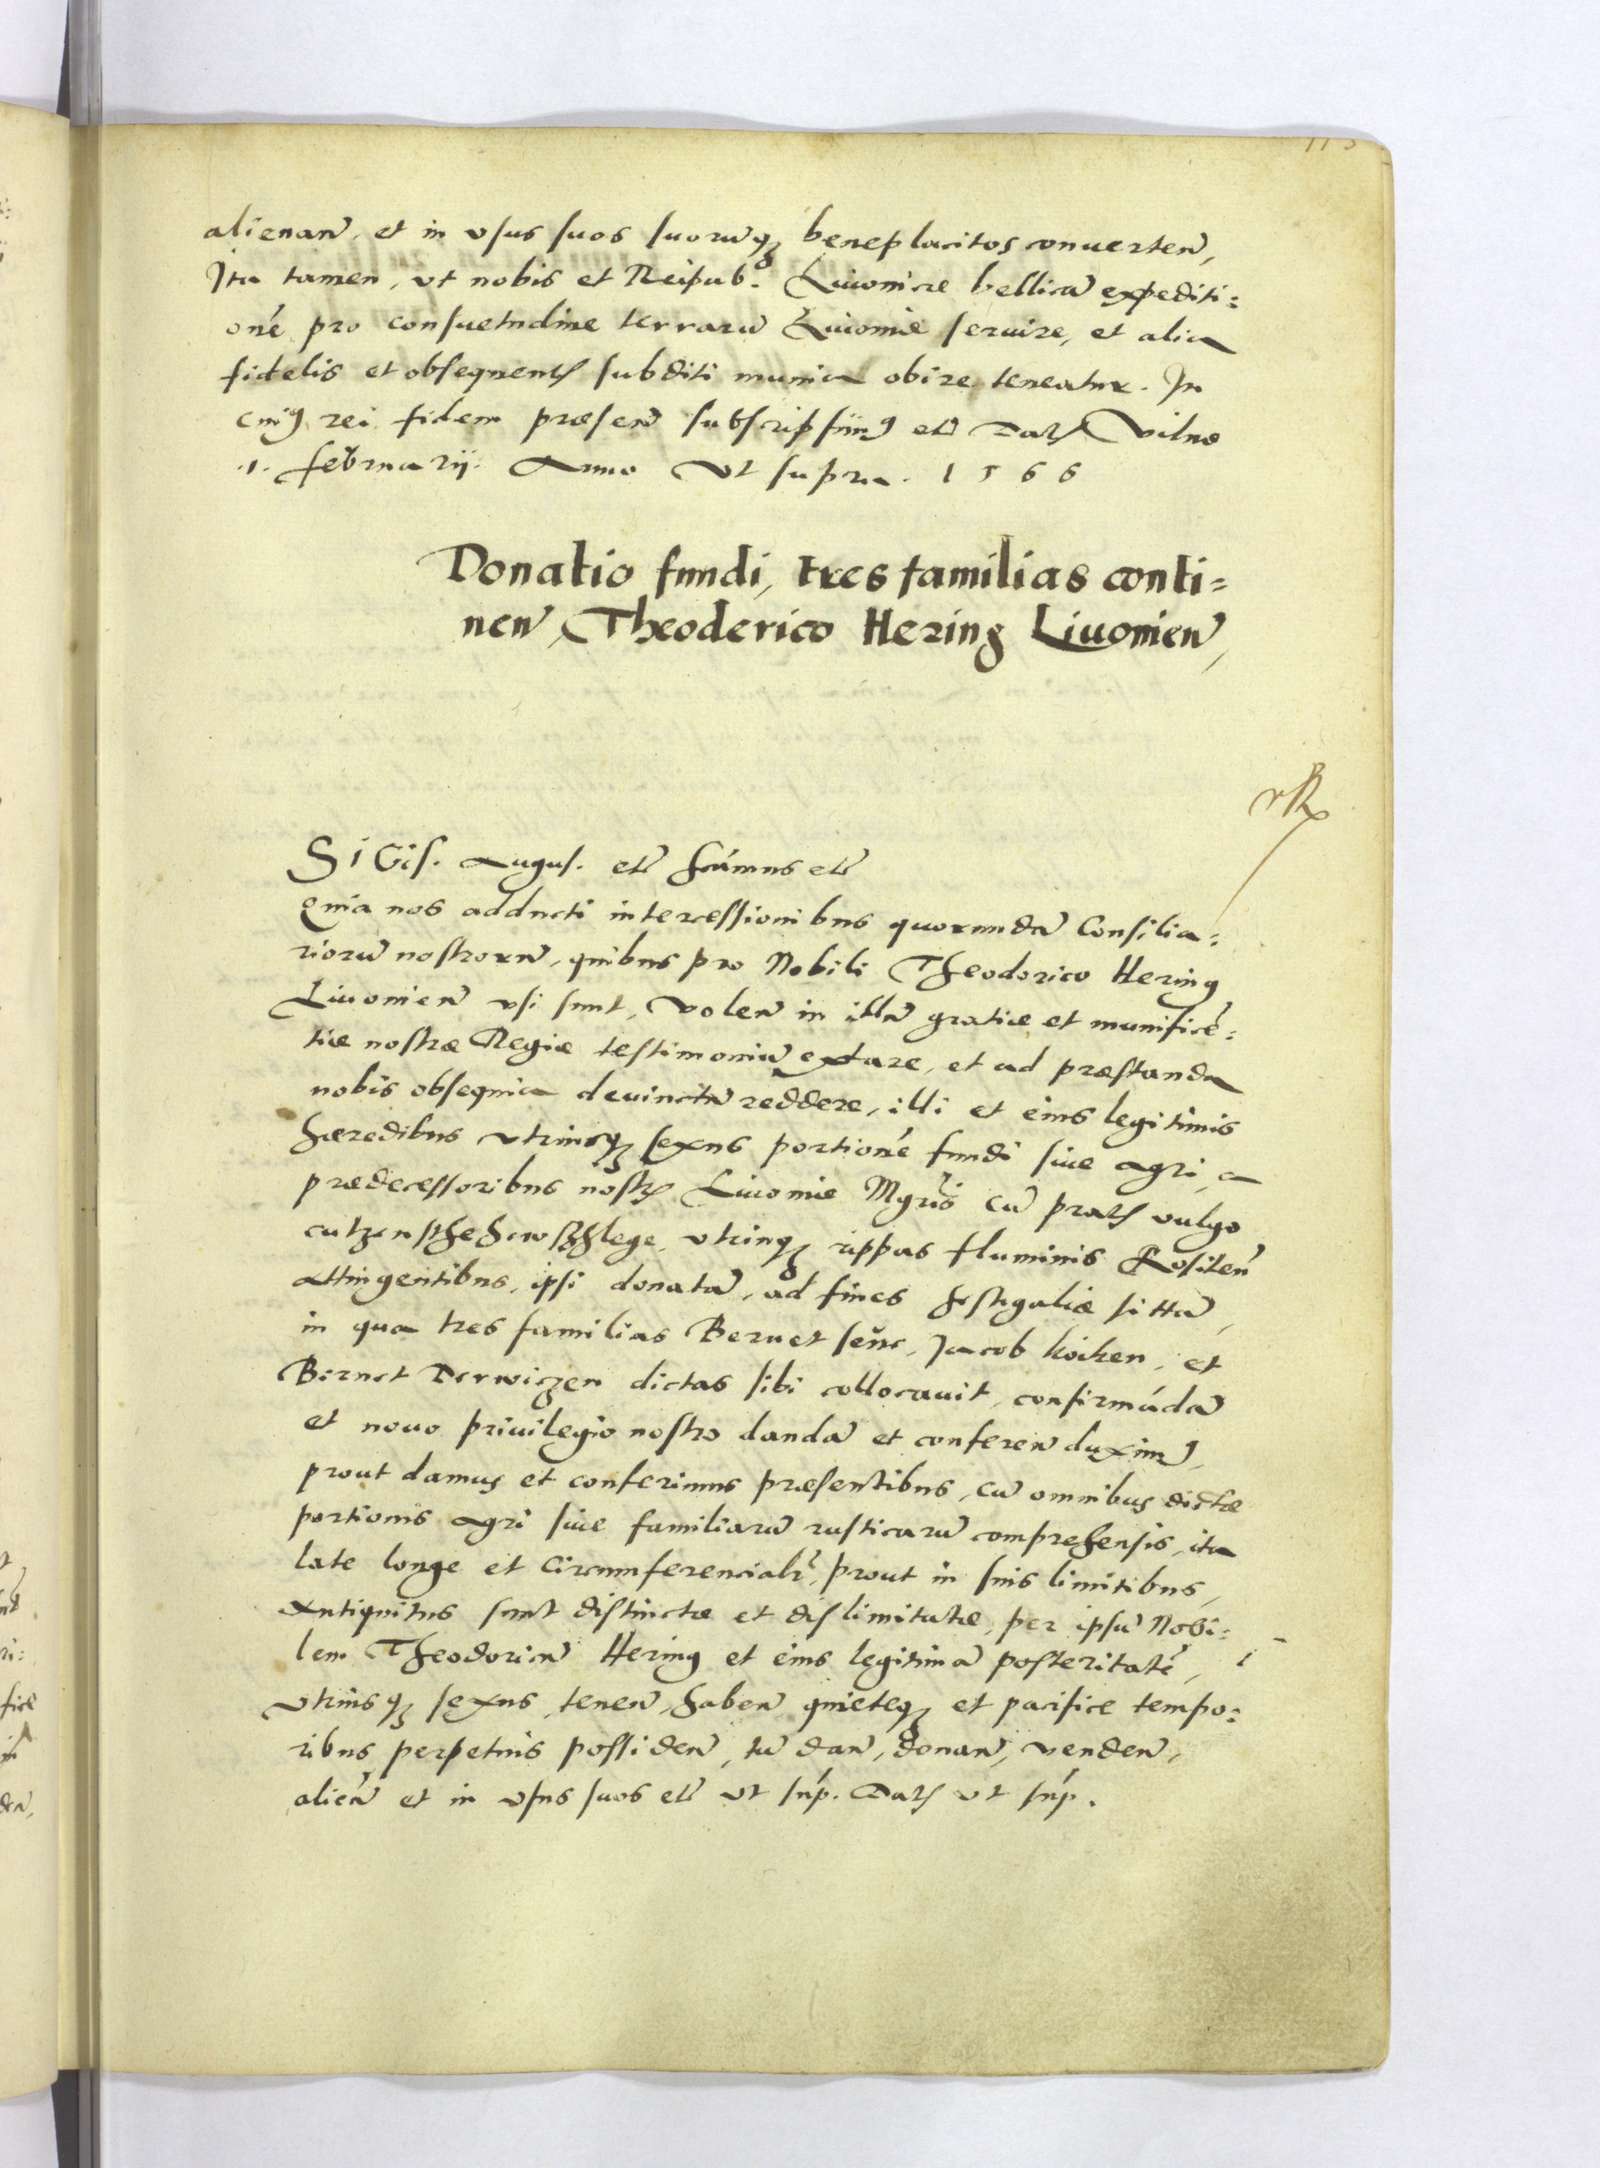 alienan̄, et in vsus suos suorūq₃ beneplacitos conuerten̄,
Ita tamen, vt nobis et Reipub. Liuonicæ bellicā expediti=
onē pro consuetudine terrarū Liuoniæ seruire, et alia
fidelis et obsequentꝭ subditi munia obire teneatur. In
cuiꝰ rei fidem præsen̄ subscripsimꝰ etc̄ Datꝭ Vilnæ
.1. februarij. Anno vt supra. 1566
Donatio fundi, tres familias conti=
nen̄, Theoderico Hering Liuonien̄,
SIGis. Augus. etc̄ scāmus etc̄
Quia nos adducti intercessionibus quorundā Consilia=
riorū nostrorū, quibus pro Nobili Theodorico Hering
Liuonien̄ vsi sunt, volen̄ in illū gratiæ et munificē=
tiæ nostræ Regiæ testimoniū extare, et ad præstanda
nobis obsequia deuinctū reddere, illi et eius legitimis
hæredibus vtriusq₃ sexus portionē fundi siue agri, a
prædecessoribus nostrꝭ Liuoniæ Mgris̄ cū pratꝭ vulgo
vtrinq₃ rippas fluminis Rositen̄
attingentibus, ipsi donatā, ad fines sittā,
in qua tres familias Beruet senc, Jacob koiken, et
Bernet Derwiczen dictas sibi collocauit, confirmādā
et nouo priuilegio nostro dandā et conferen̄ duximꝰ,
prout damus et conferimus præsentibus, cū omnibus dictæ
portionis agri siue familiarū rusticarū comprehensis, ita
late longe et circumferencialr̄, prout in suis limitibus,
antiquitus sunt distinctæ et dislimitatæ, per ipsū Nobi=
lem Theodoricū Hering et eius legitimā posteritatē,
vtriusq₃ sexus, tenen̄, haben̄ quieteq₃ et pacifice tempo=
ribus perpetuis possiden̄, tū dan̄, donan̄, venden̄,
alien̄ et in vsus suos etc̄ vt sup̄. Datꝭ vt sup̄.